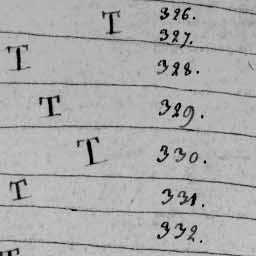 T 326.
327.
T 328.
T 329.
T 330.
T 331.
332.
T